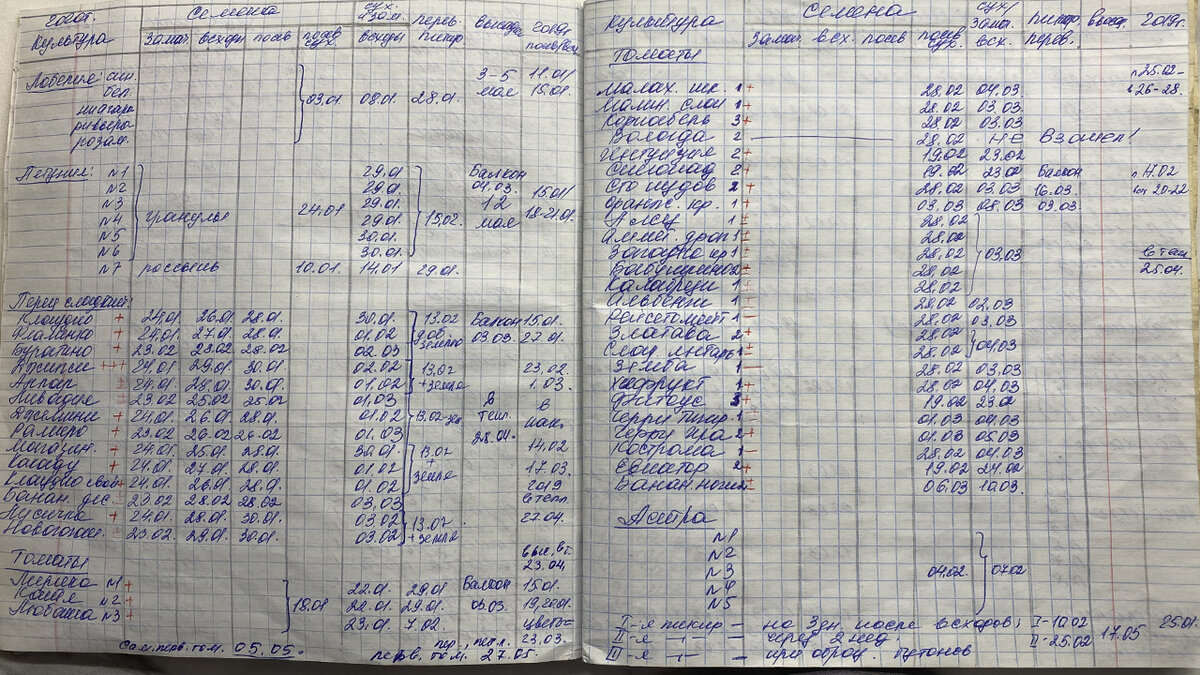 2020г. Семена сух. зам. перев. высадка 2019г
Культура Замач. всходы посев посев сух. всходы пикир. посев/всх.
Лобелия: син. 3-5 11.01/
бел. 03.01. 08.01. 28.01. мая 15.01.
ниагара
ривьера
розам.
Петуния: N1 29.01 Балкон
N2 29.01 04.03. 15.01/
N3 гранулы 24.01 29.01. 15.02. 12 18-21.01.
N4 29.01. мая
N5 30.01.
N6 30.01.
N7 россыпь 10.01. 14.01 29.01.
Перец сладкий:
Клаудио + 24.01 26.01 28.01. 30.01. 13.02 Балкон 15.01.
Фламенко + 24.01. 27.01 28.01. 01.02 доб. 03.03. 27.01.
Буратино + 23.02 28.02 28.02 02.03 землю
Джипси +++ 24.01 29.01 30.01. 02.02 13.02 23.02.
Арпар ± 24.01. 28.01 30.01. 01.02 + земля 1.03.
± 23.02 25.02 25.02 01.03 в в
Джемини + 24.01. 26.01 28.01. 01.02 13.02 тепл. пак.
Рамиро + 23.02 26.02 26.02 01.03 28.04.
Магазин. + 24.01. 25.01 28.01. 30.01. 13.02 14.02
Какаду + 24.01. 27.01 28.01. 01.02 + 17.03.
Клаудио свой + 24.01. 26.01 28.01. 01.02 земля 2019
Банан. дес. ± 23.02 28.02 28.02 03.03 в тепл.
Лисичка + 24.01. 28.01. 30.01. 03.02 13.02 27.04.
Новогогош. ± 23.02. 29.01. 30.01. 03.02 + земля
Томаты выс. в т. 23.04
Лирика N1 + 22.01. 29.01 Балкон 15.01.
Катя N2 + 18.01 22.01. 29.01. 03.03. 19, 20.01.
Любаша N3 + 23.01. 7.02. цветы-
23.03.
Сам. перв. том. 05.05. пер., пепл.
перв. том. 27.05.
Культура Семена сух/ зам. пикир. высад. 2019г
Замач. всх. посев посев сух. всх. перев.
Томаты п 25.02-
Малах. шк. 1 + 28.02 04.03 в 26-28.
Малин. слон 1 + 28.02 03.03
Корнабель 3 + 28.02 03.03
Вологда 2 — 28.02 Не взошел!
2 + 19.02 23.02
2 + 19.02 23.02 Балкон п 17.02
Сто пудов 2 + 28.02 03.03 16.03. 20-22
Оранж. кр. 1 + 03.03 28.03 03.03.
Алсу 1 ± 28.02
1 ± 28.02
Загадка кр 1 ± 28.02 03.03 в теп
± 28.02 25.04.
1 ± 28.02
1 ± 28.02 02.03
1 — 28.02 03.03
Златава 2 + 28.02 04.03
Слад. янтарь 1 ± 28.02
Зимба 1 — 28.02 03.03
1 + 28.02 04.03
Фитоус 3 + 19.02 23.02
Черри 1 ± 01.03 04.03
Черри Ира 2 + 01.03 05.03
Кострома 1 — 28.02 04.03
Евпатор 2 + 19.02 24.02
Банан. ноги ± 06.03 10.03.
Астра
N1
N2
N3 04.02. 07.02
N4
N5
I-я пикир — на 3 дн. после всходов; I-10.02 25.01.
II-я —"— — через 2 нед. II-25.02 17.05
III-я —"— — при образ. бутонов